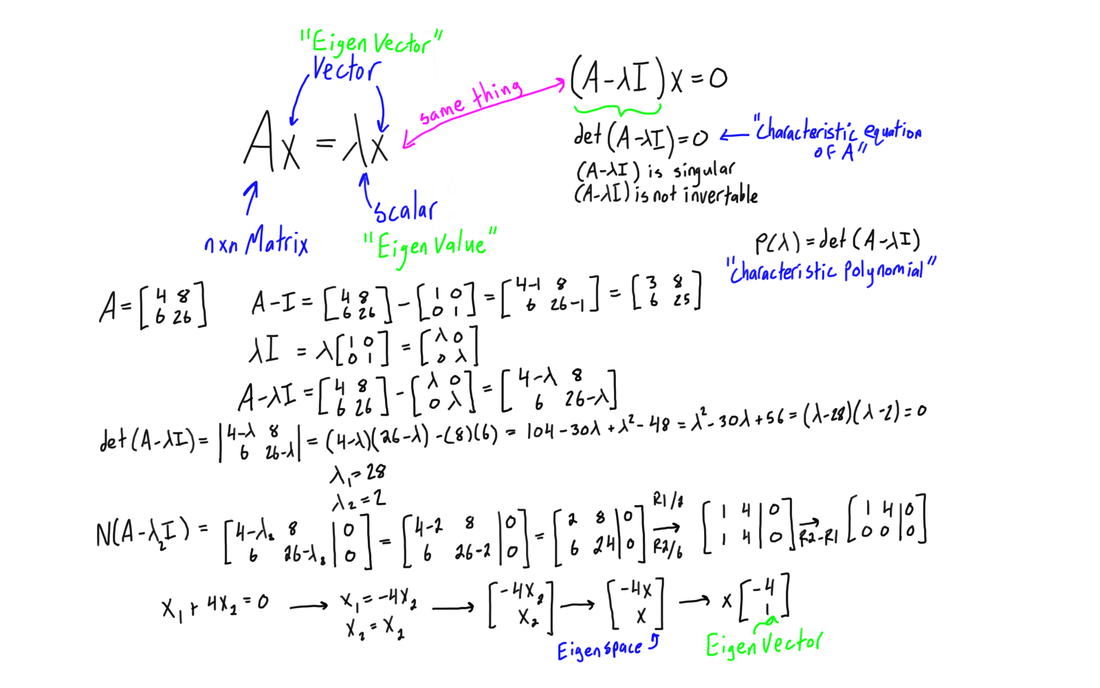 "Eigen Vector"
Vector
Ax = λx
nxn Matrix
scalar
"Eigen Value"
same thing
(A-λI)x=0
det(A-λI)=0 ← "characteristic equation
OF A"
(A-λI) is singular
(A-λI) is not invertable
P(λ)=det(A-λI)
"characteristic Polynomial"
A=[4 8; 6 26] A-I=[4 8; 6 26]-[1 0; 0 1]=[4-1 8; 6 26-1]=[3 8; 6 25]
λI = λ[1 0; 0 1]=[λ 0; 0 λ]
A-λI=[4 8; 6 26]-[λ 0; 0 λ]=[4-λ 8; 6 26-λ]
det(A-λI)=|4-λ 8; 6 26-λ|=(4-λ)(26-λ)-(8)(6)=104-30λ+λ²-48=λ²-30λ+56=(λ-28)(λ-2)=0
λ₁=28
λ₂=2
N(A-λ₂I)=[4-λ₂ 8|0; 6 26-λ₂|0]=[4-2 8|0; 6 26-2|0]=[2 8|0; 6 24|0] R1/2 → R2/6 [1 4|0; 1 4|0] → R2-R1 [1 4|0; 0 0|0]
x₁+4x₂=0 → x₁=-4x₂ → [-4x₂; x₂] → [-4x; x] → x[-4; 1]
x₂=x₂
Eigenspace
Eigen Vector